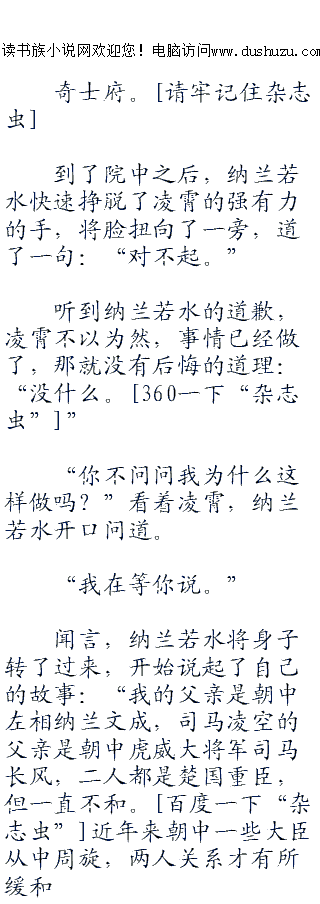 读书族小说网欢迎您！电脑访问www.dushuzu.com
奇士府。[请牢记住杂志
虫]
到了院中之后，纳兰若
水快速挣脱了凌霄的强有力
的手，将脸扭向了一旁，道
了一句：“对不起。”
听到纳兰若水的道歉，
凌霄不以为然，事情已经做
了，那就没有后悔的道理：
“没什么。[360一下“杂志
虫”]”
“你不问问我为什么这
样做吗？”看着凌霄，纳兰
若水开口问道。
“我在等你说。”
闻言，纳兰若水将身子
转了过来，开始说起了自己
的故事：“我的父亲是朝中
左相纳兰文成，司马凌空的
父亲是朝中虎威大将军司马
长风，二人都是楚国重臣，
但一直不和。[百度一下“杂
志虫”]近年来朝中一些大臣
从中周旋，两人关系才有所
缓和